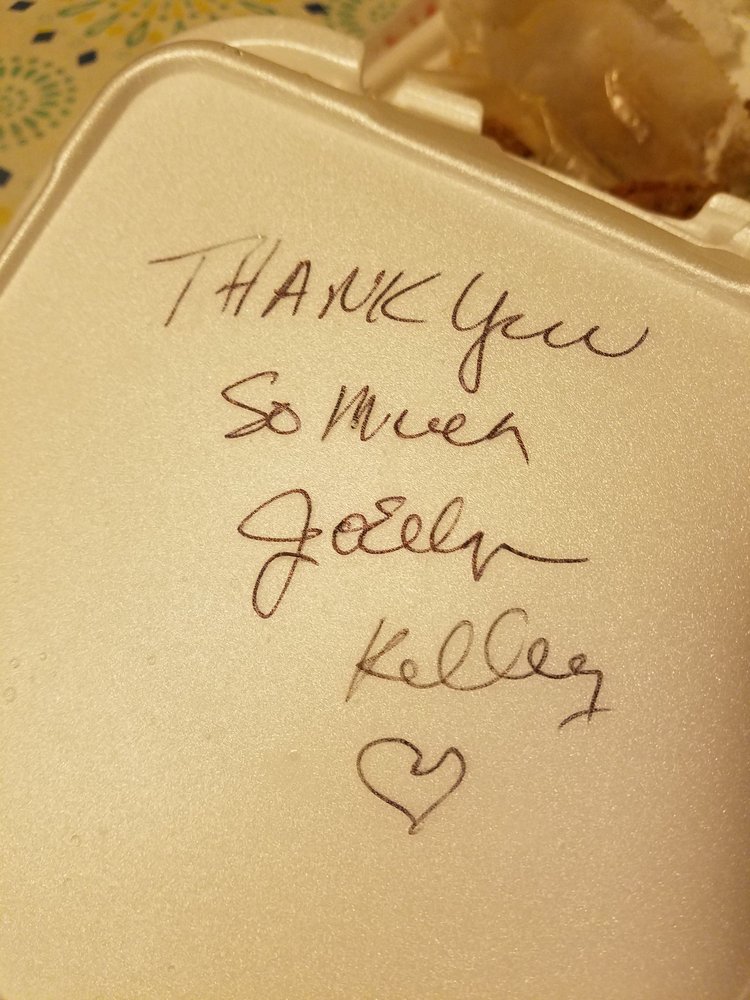 THANK You
So Much
JoEllyn
Kelley